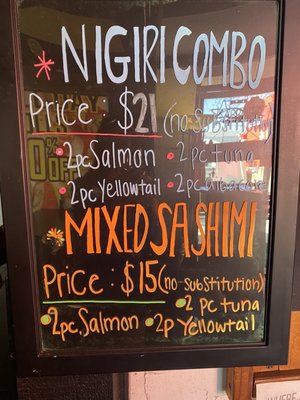 NIGIRI COMBO
Price : $21 (no substitution)
2pc Salmon 2 pc tuna
2pc Yellowtail 2pc albacore
MIXED SASHIMI
Price : $15 (no substitution)
2 pc tuna
2pc. Salmon 2p Yellowtail